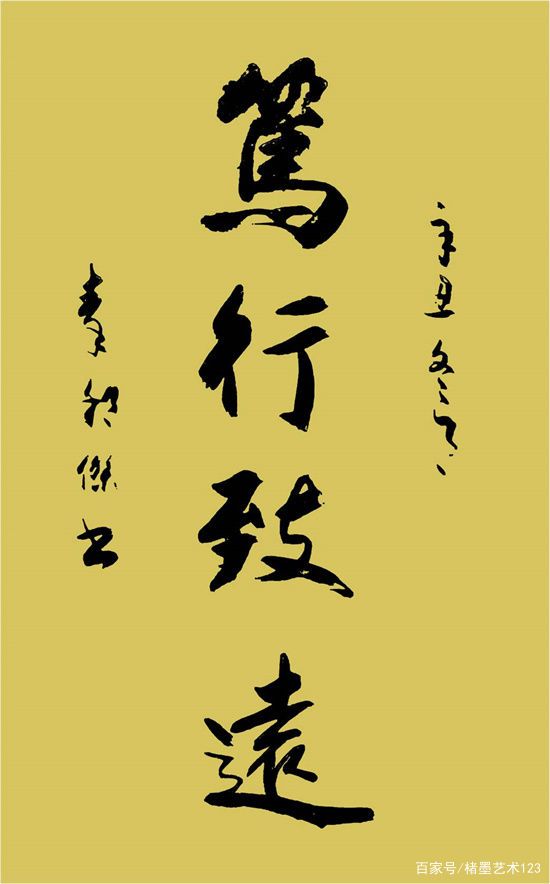 辛丑冬
篤行致遠
秦傑书
百家号/楮墨艺术123